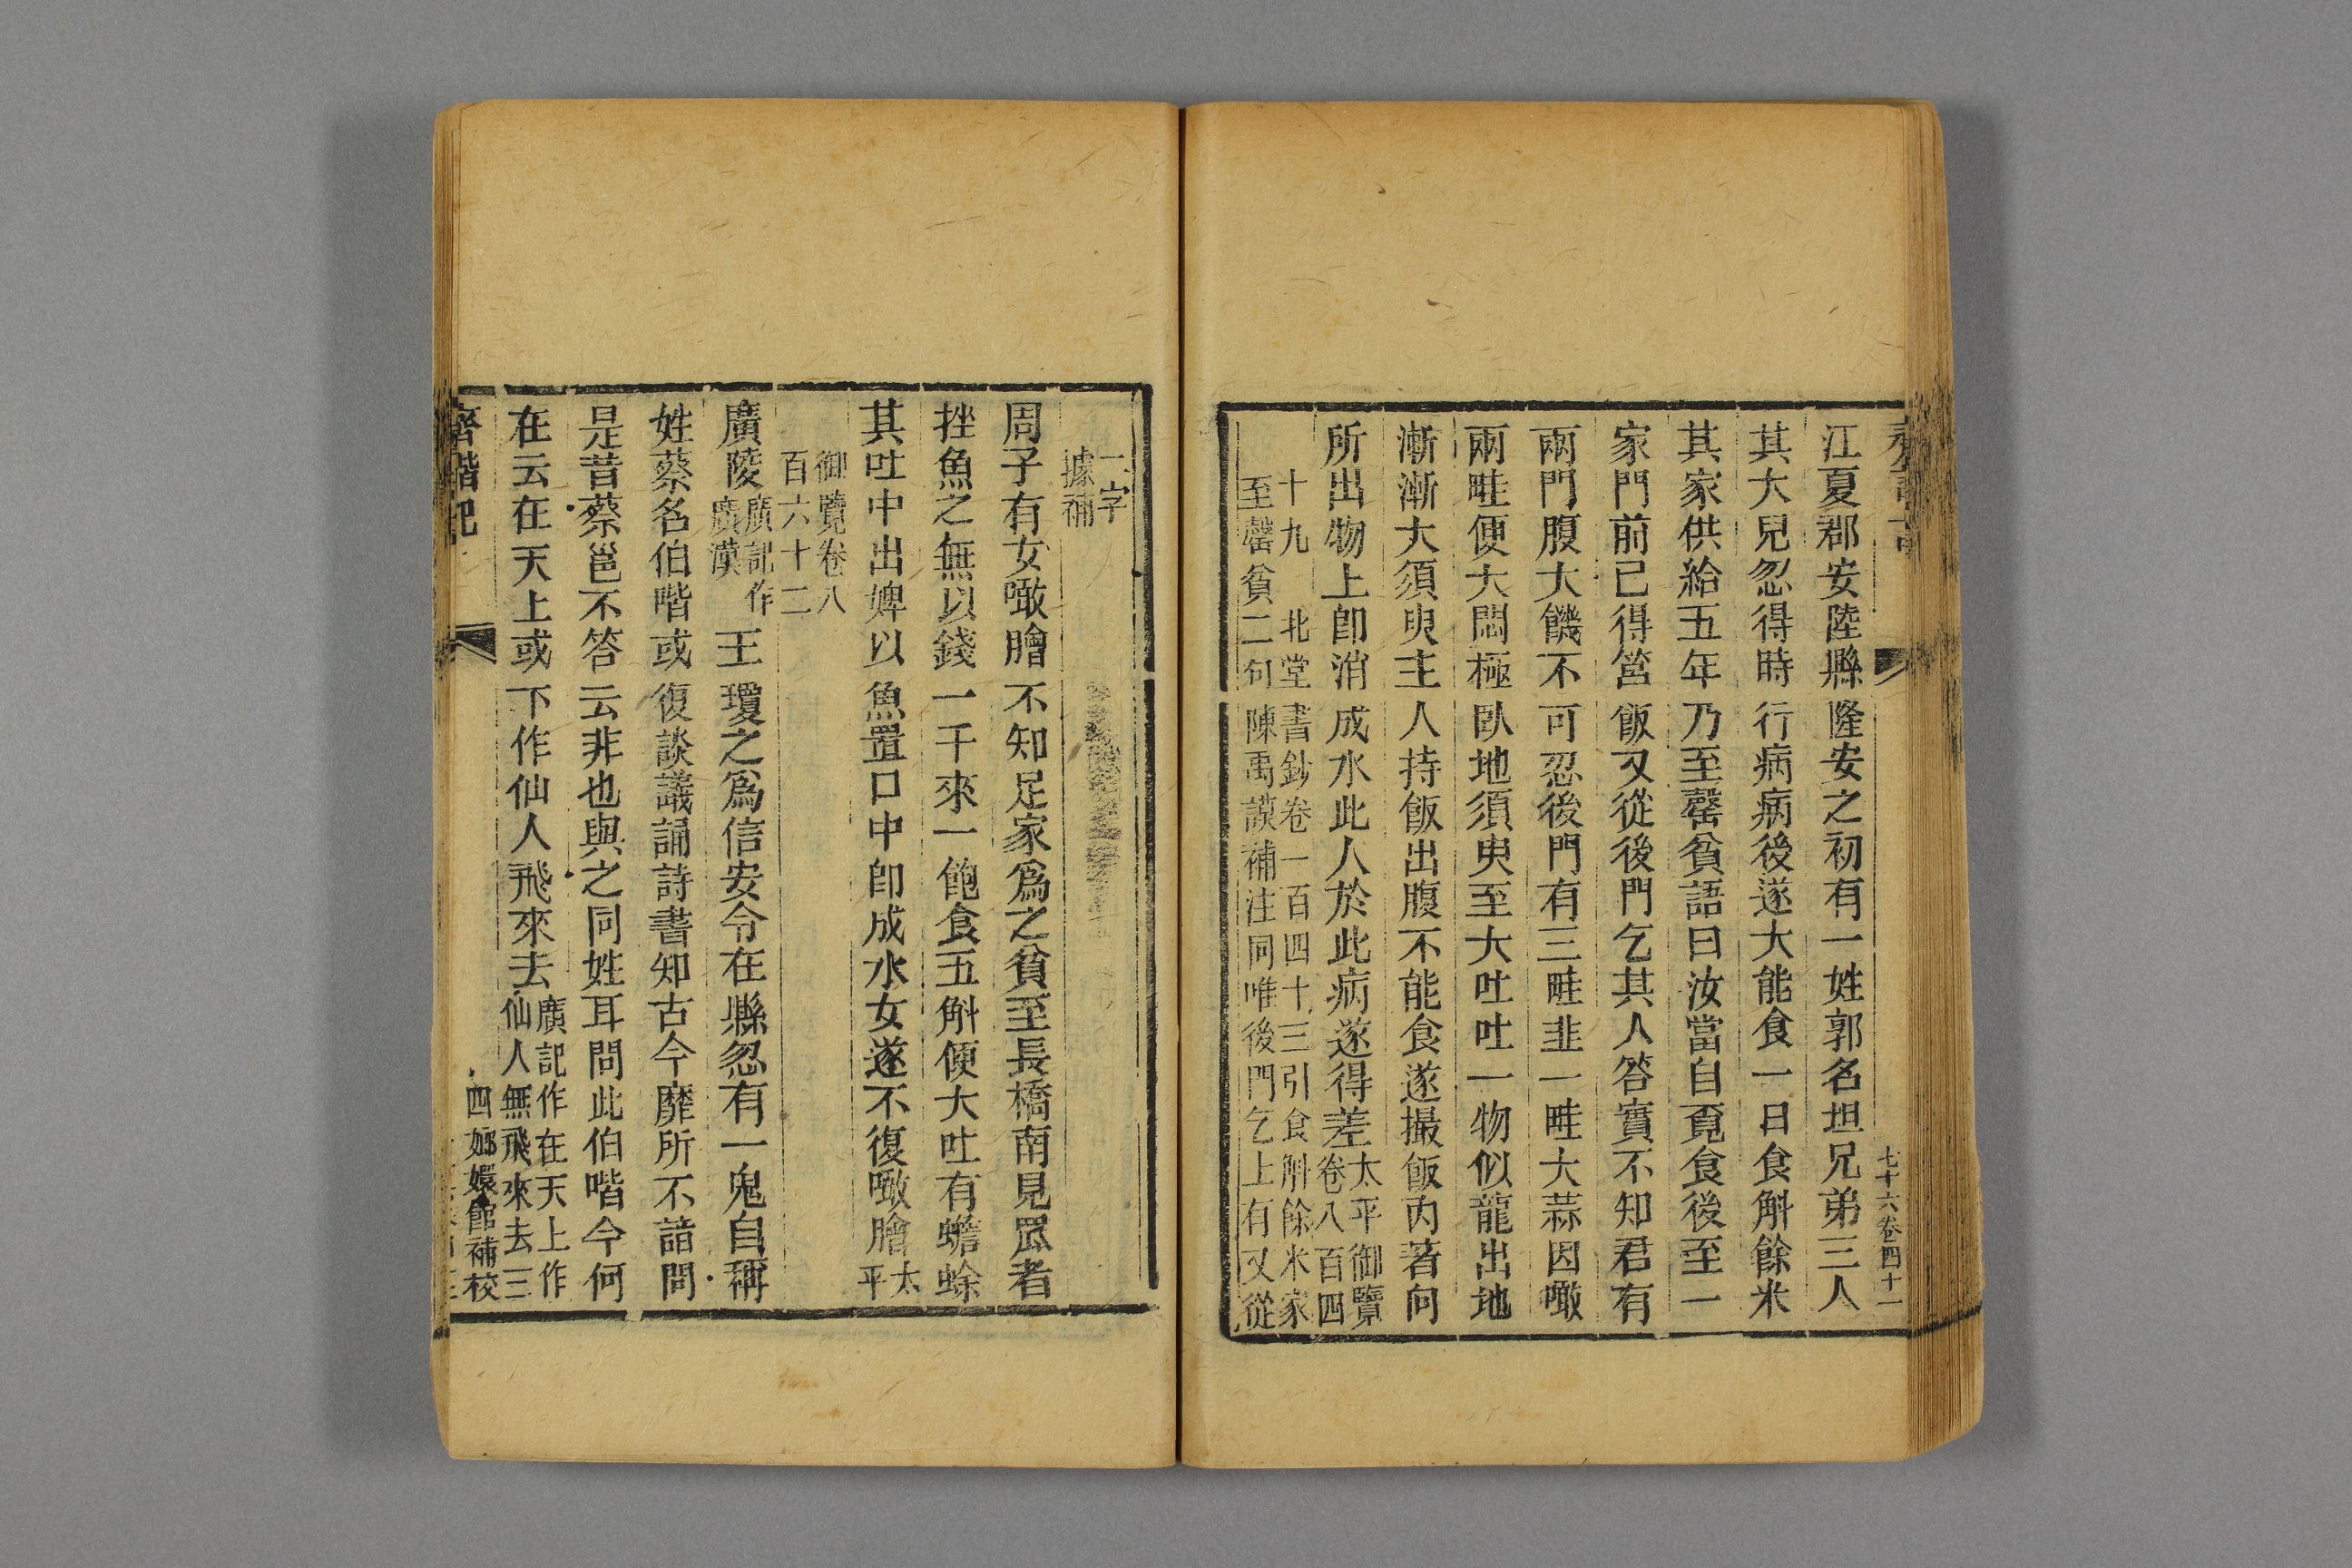 七十六卷四十一
江夏郡安陸縣隆安之初有一姓郭名坦兄弟三人
其大兒忽得時行病病後遂大能食一日食斛餘米
其家供給五年乃至罄貧語曰汝當自覔食後至一
家門前已得筥飯又從後門乞其人答實不知君有
兩門腹大饑不可忍後門有三畦韭一畦大蒜因噉
兩畦便大悶極臥地須臾至大吐吐一物似龍出地
漸漸大須臾主人持飯出腹不能食遂撮飯內著向
所出物上卽消成水此人於此病遂得差太平御覽
卷八百四
十九 北堂書鈔卷一百四十三引食斛餘米家
至罄貧二句陳禹謨補注同唯後門乞上有又從
二字
據補
周子有女噉膾不知足家爲之貧至長橋南見罛者
挫魚之無以錢一千來一飽食五斛便大吐有蟾蜍
其吐中出婢以魚置口中卽成水女遂不復噉膾太
平
御覽卷八
百六十二
廣陵廣記作
廣漢王瓊之爲信安令在縣忽有一鬼自稱
姓蔡名伯喈或復談議誦詩書知古今靡所不諳問
是昔蔡邕不答云非也與之同姓耳問此伯喈今何
在云在天上或下作仙人飛來去廣記作在天上作
仙人無飛來去三
齊諧記
四 嫏嬛館補校